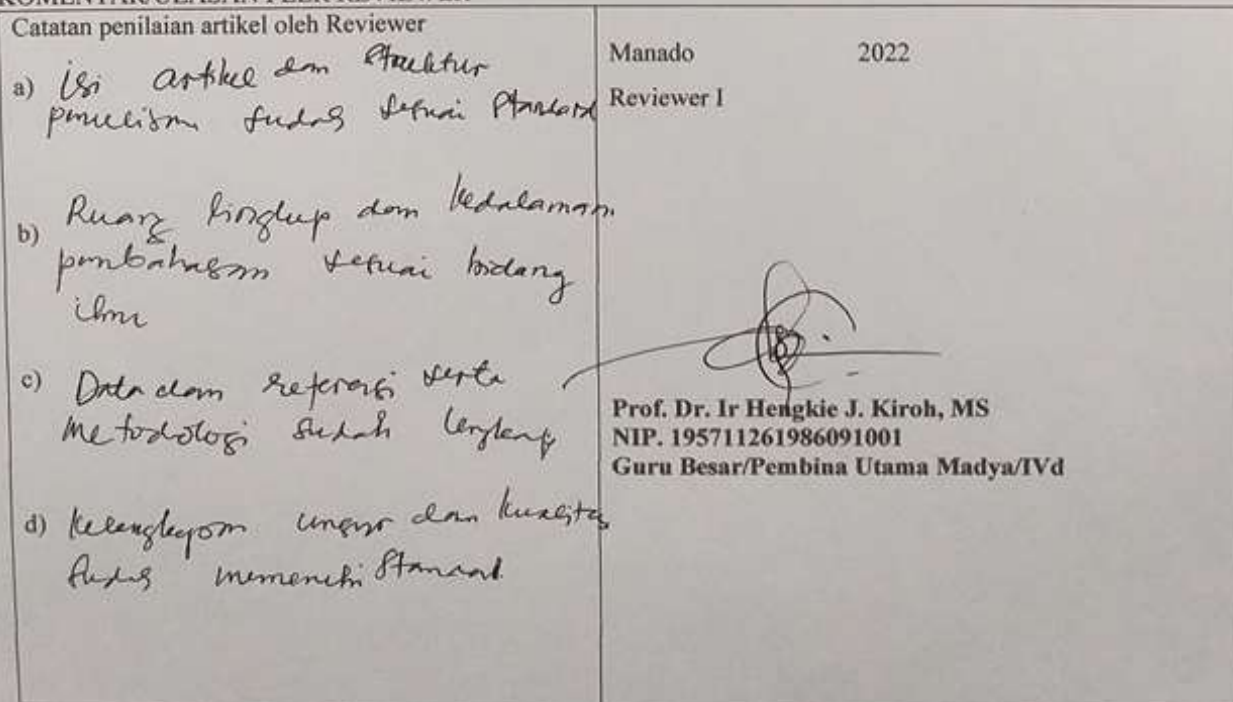 KOMENTAR/ULASAN PEER REVIEWER
Catatan penilaian artikel oleh Reviewer
a) isi artikel dan struktur
penulisan sudah sesuai standard
b) Ruang lingkup dan kedalaman
pembahasan sesuai bidang
ilmu
c) Data dan referensi serta
metodologi sudah lengkap
d) Kelengkapan unsur dan kualitas
sudah memenuhi standard.
Manado 2022
Reviewer I
Prof. Dr. Ir Hengkie J. Kiroh, MS
NIP. 195711261986091001
Guru Besar/Pembina Utama Madya/IVd